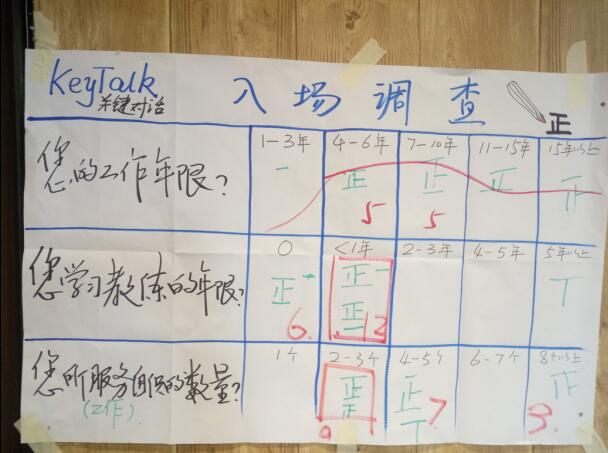 KeyTalk 入场调查
关键对话 正
1-3年 4-6年 7-10年 11-15年 15年以上
您的工作年限?
一 正 正 正
5 5
0 <1年 2-3年 4-5年 5年以上
您学习教练的年限?
正一 正一 丅
正一
6. 12
1个 2-3个 4-5个 6-7个 8个以上
您所服务组织的数量?
(工作)
正 正
丅
9 7 3.